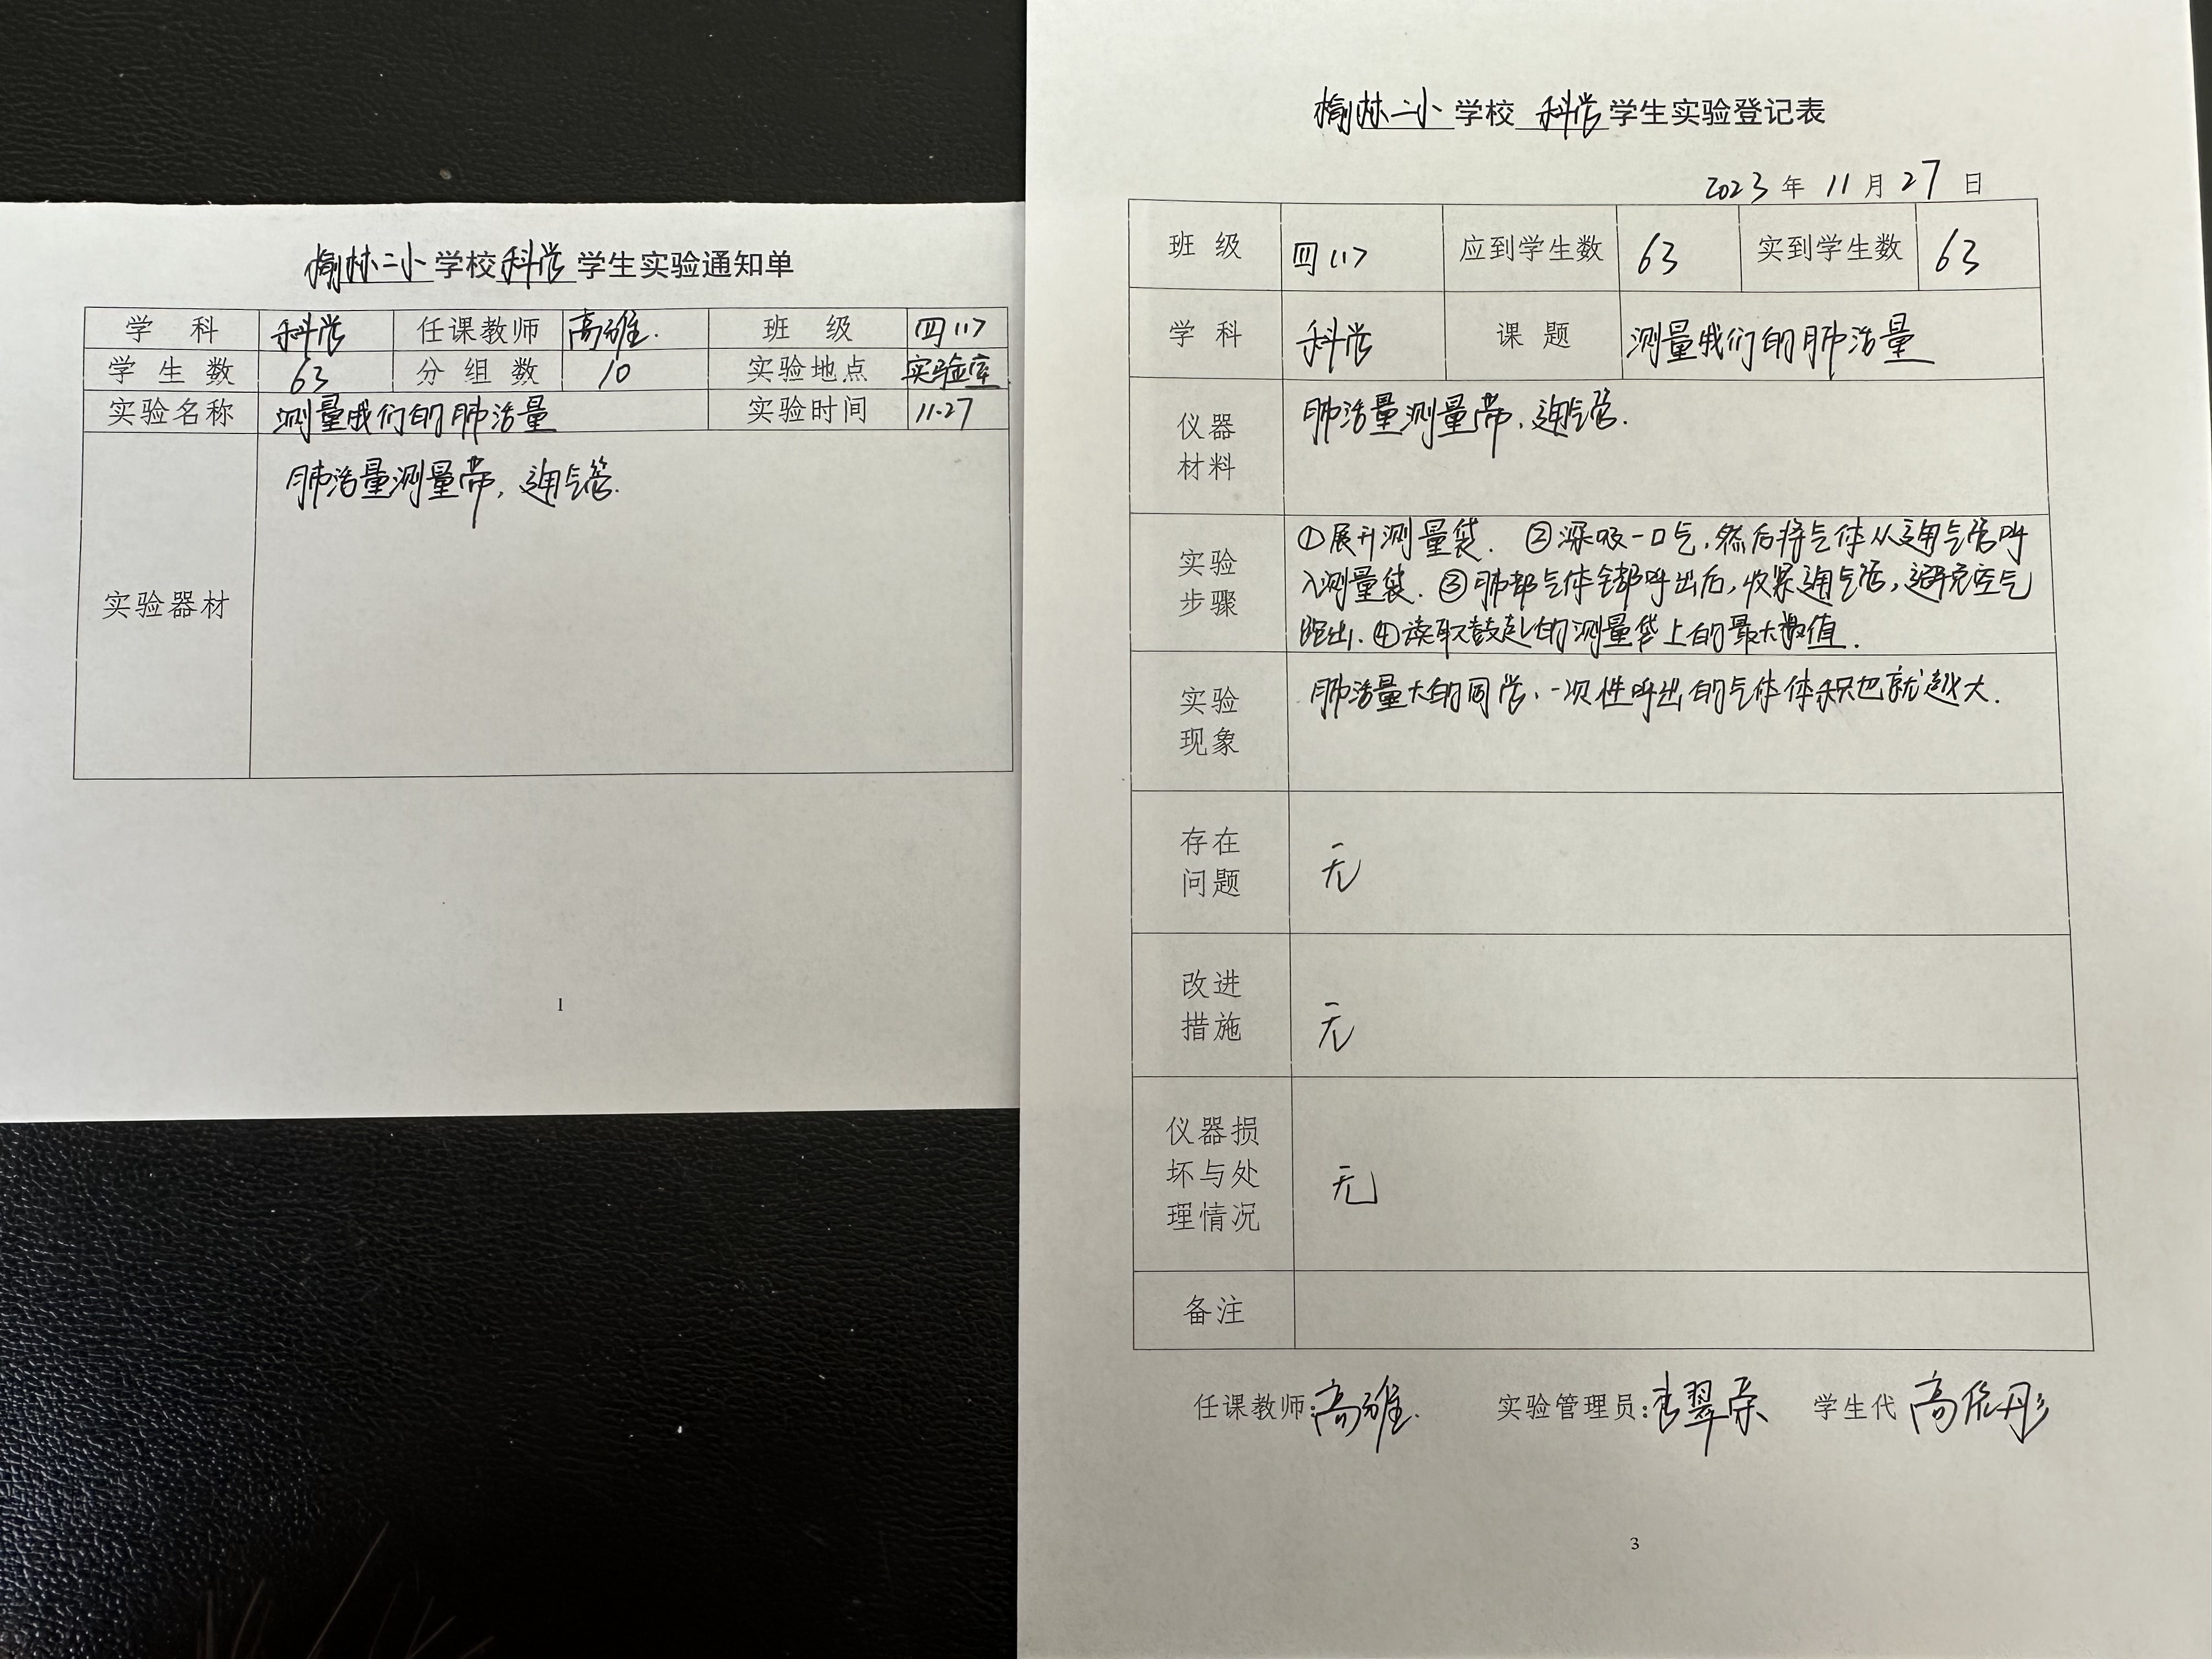 榆林二小学校科学学生实验通知单
学科 科学 任课教师 高雄. 班级 四(1)
学生数 63 分组数 10 实验地点 实验室
实验名称 测量我们的肺活量 实验时间 11.27
实验器材 肺活量测量带, 通气管.
1
榆林二小学校科学学生实验登记表
2023年11月27日
班级 四(1) 应到学生数 63 实到学生数 63
学科 科学 课题 测量我们的肺活量
仪器材料 肺活量测量带, 通气管.
实验步骤 ①展开测量袋. ②深吸一口气, 然后将气体从通气管呼
入测量袋. ③肺部气体全部呼出后, 收紧通气管, 避免空气
跑出. ④读取鼓起的测量袋上的最大数值.
实验现象 肺活量大的同学, 一次性呼出的气体体积也就越大.
存在问题 无
改进措施 无
仪器损坏与处理情况 无
备注
任课教师: 高雄. 实验管理员: 翠荣 学生代 高依彤
3